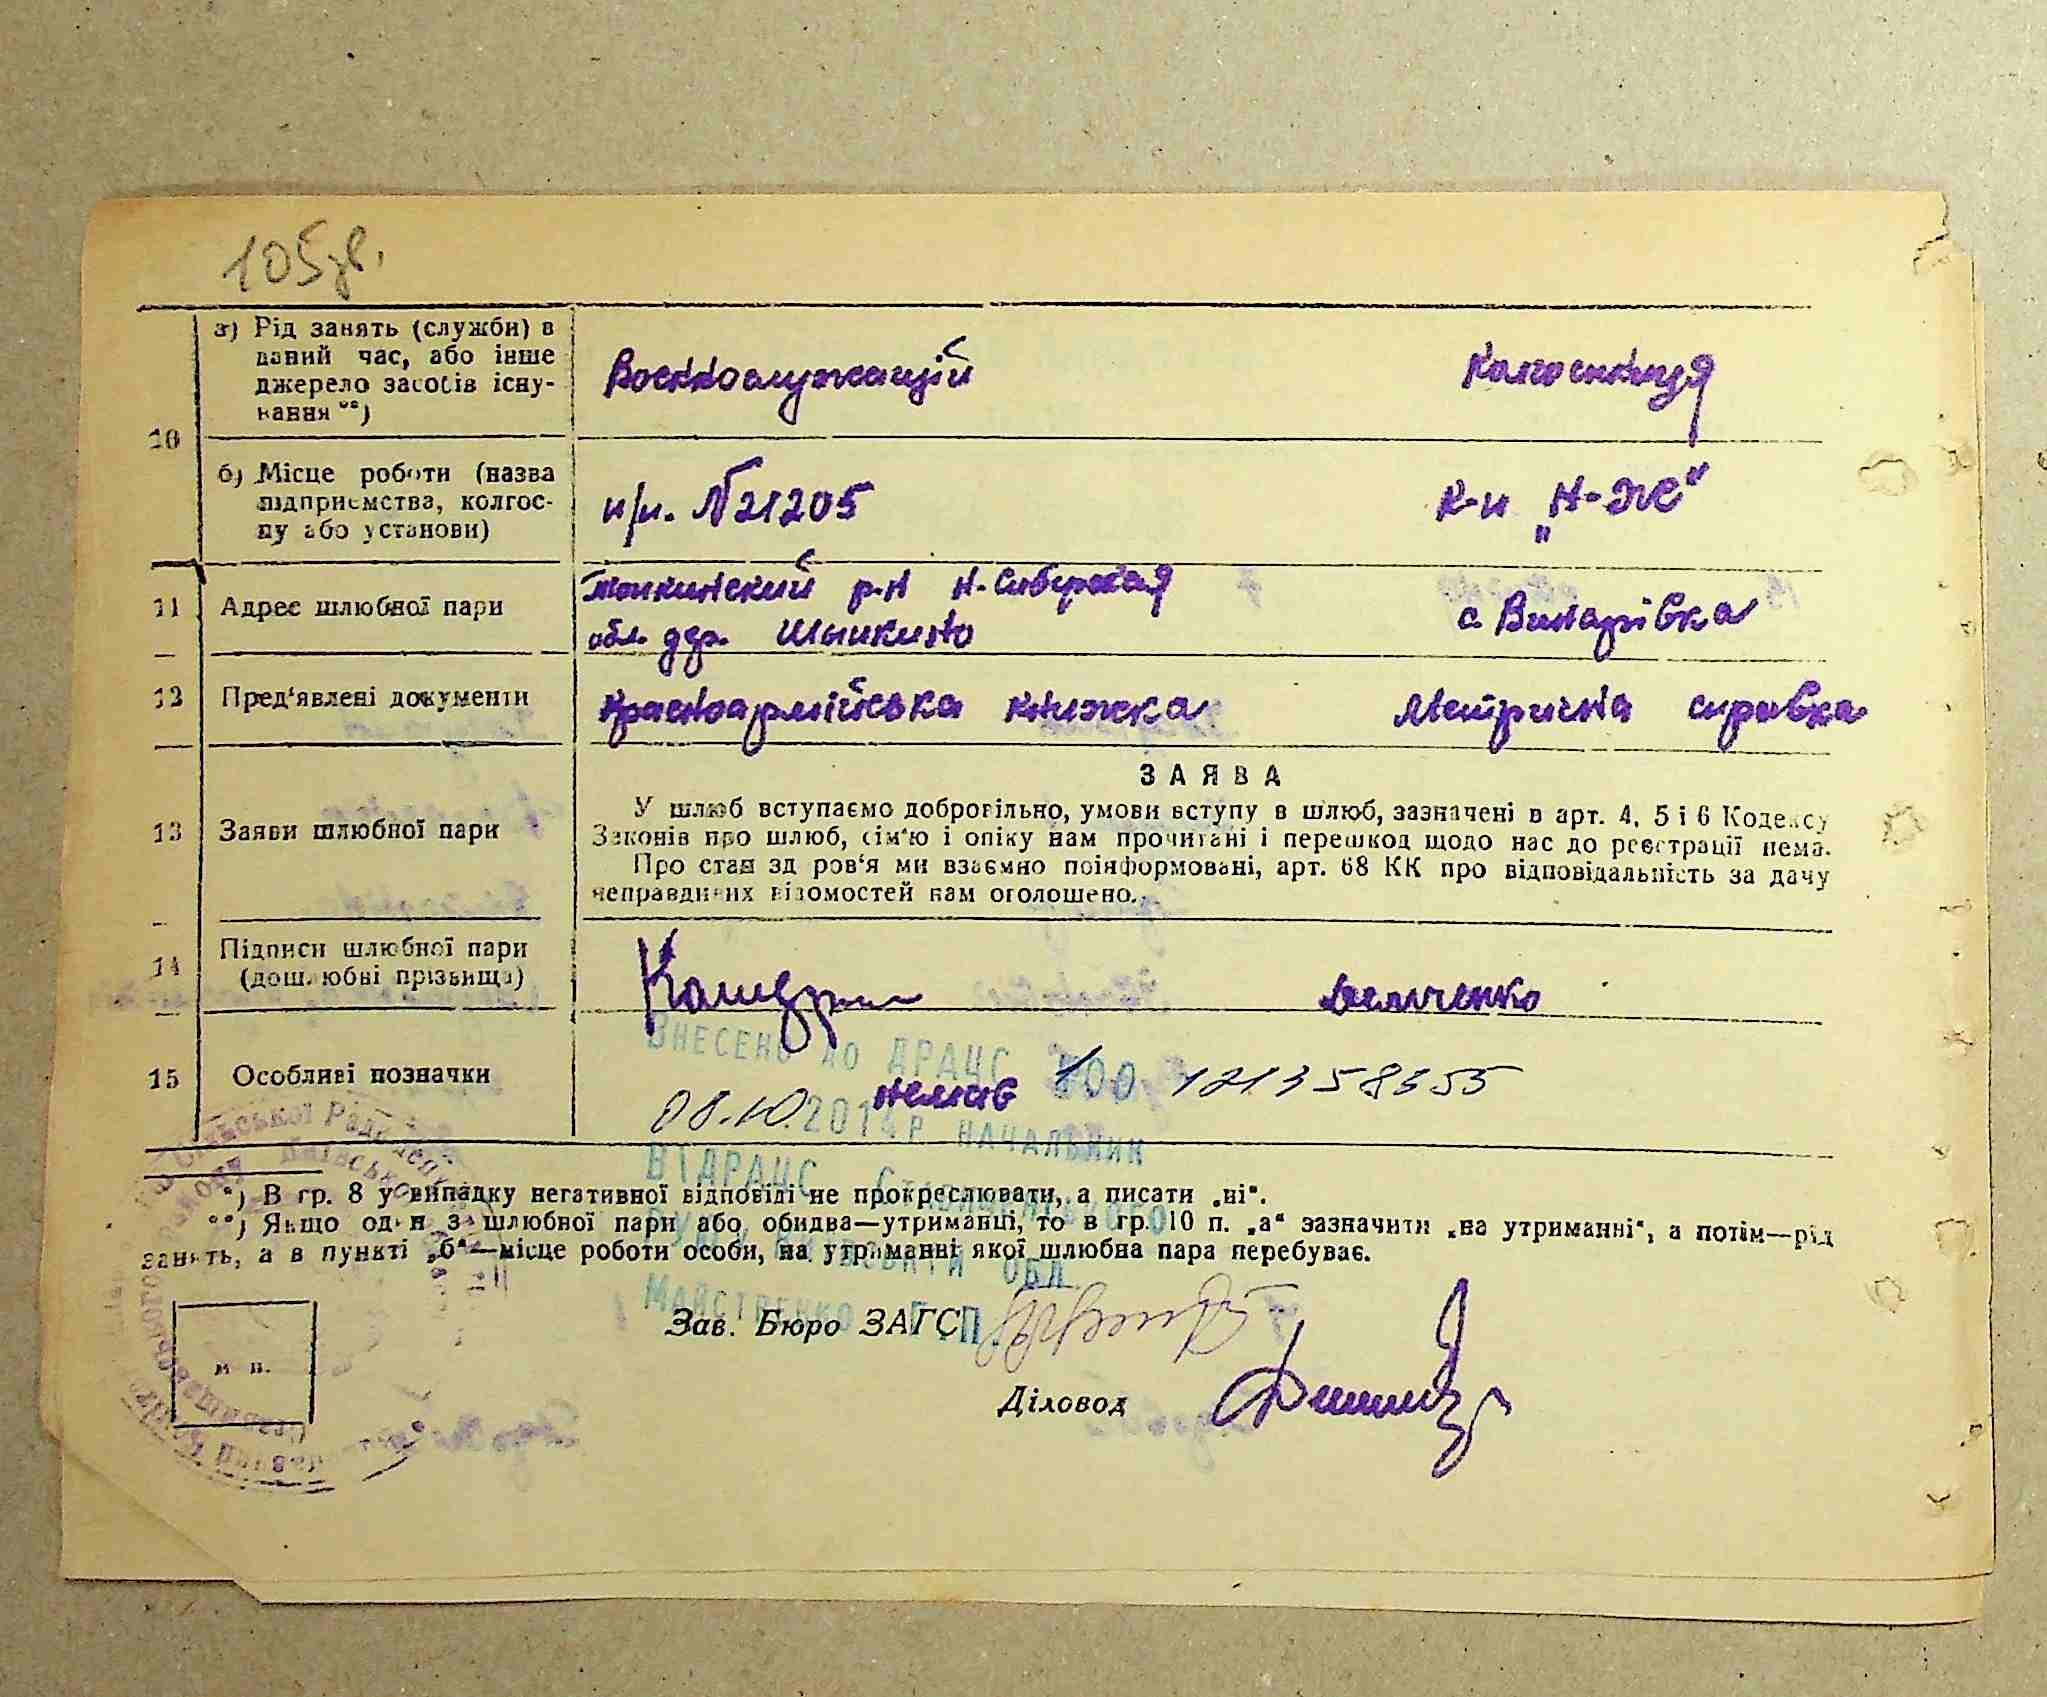 105зв.
10
а) Рід занять (служби) в
даний час, або інше
джерело засобів існу-
вання **)
Военнослужащій
Колгоспниця
б) Місце роботи (назва
підприємства, колгос-
пу або установи)
п/п. №21205
К-п „Н-Ж"
11
Адрес шлюбної пари
р-н Н-Сибирская
обл. дер.
с. Винарівка
12
Пред'явлені документи
Красноармійська книжка
Метрична справка
13
Заяви шлюбної пари
ЗАЯВА
У шлюб вступаємо добровільно, умови вступу в шлюб, зазначені в арт. 4, 5 і 6 Кодексу
Законів про шлюб, сім'ю і опіку нам прочитані і перешкод щодо нас до реєстрації нема.
Про стан здоров'я ми взаємно поінформовані, арт. 68 КК про відповідальність за дачу
неправдивих відомостей нам оголошено.
14
Підписи шлюбної пари
(дошлюбні прізвища)
15
Особливі позначки
немає
ВНЕСЕНО ДО ДРАЦС 100 121358355
08.10.2014Р НАЧАЛЬНИК
ВІДРАЦС СТАВИЩЕНСЬКОГО
РУЮ У КИЇВСЬКІЙ ОБЛ
МАЙСТРЕНКО Г.П.
*) В гр. 8 у випадку негативної відповіді не прокреслювати, а писати „ні".
**) Якщо один з шлюбної пари або обидва—утриманці, то в гр. 10 п. „а" зазначити „на утриманні", а потім—рід
занять, а в пункті „б"—місце роботи особи, на утриманні якої шлюбна пара перебуває.
м п.
Зав. Бюро ЗАГС
Діловод